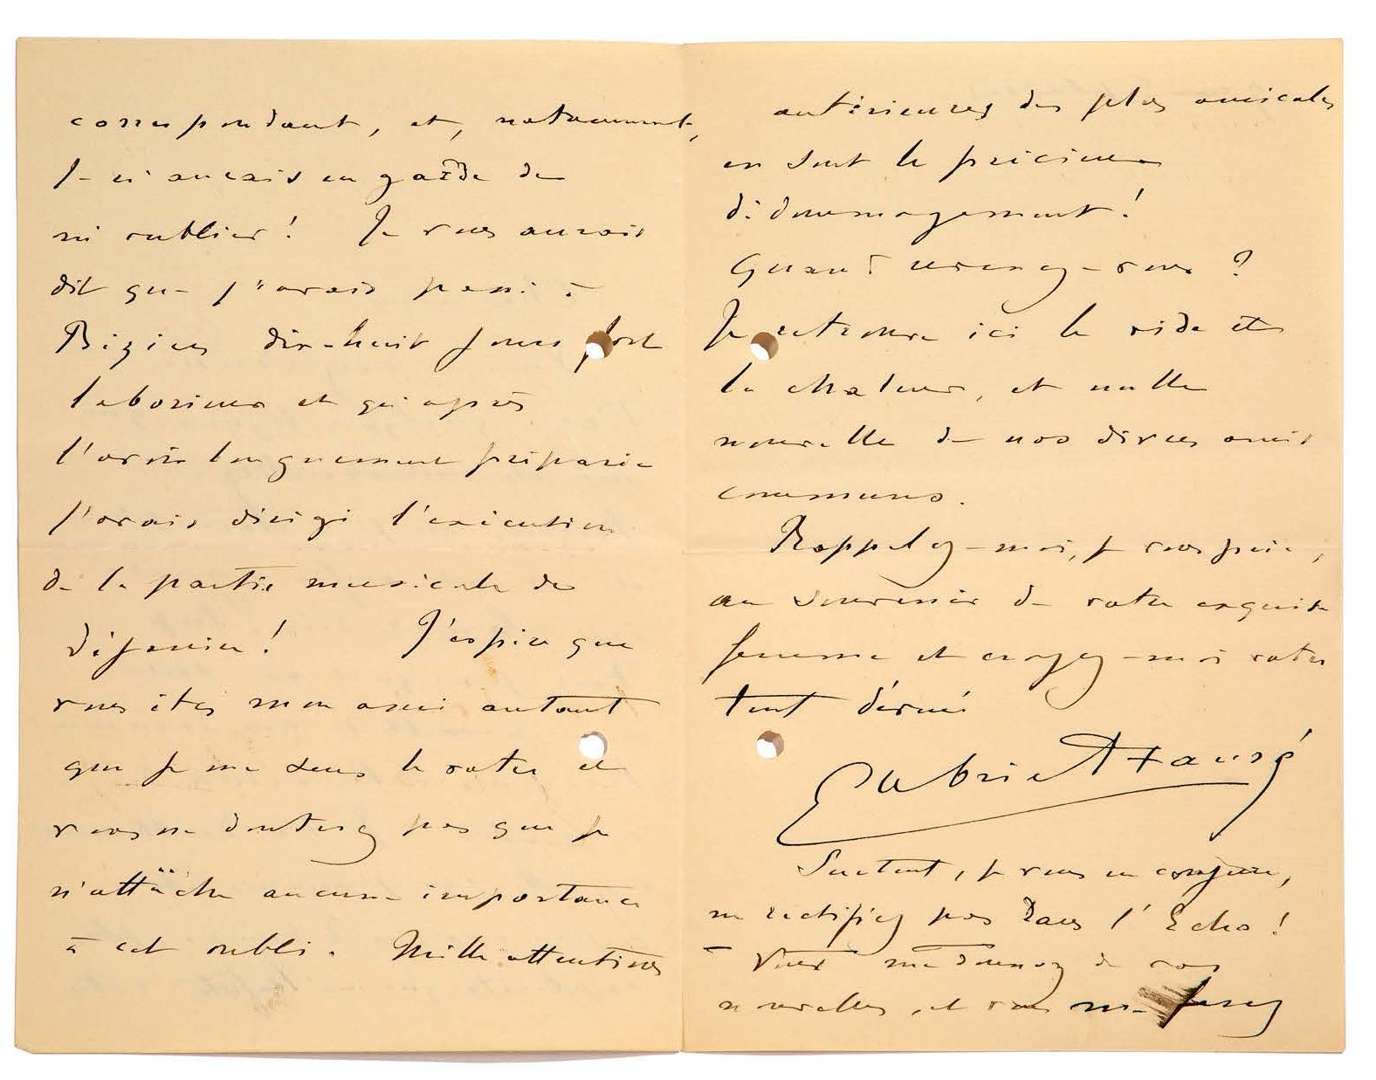 correspondant, et, notamment,
je n'aurais eu garde de
m'oublier! Je vous aurais
dit que j'avais passé à
Béziers dix-huit jours fort
laborieux et qu'après
l'avoir longuement préparée
j'avais dirigé l'exécution
de la partie musicale de
Déjanire! J'espère que
vous êtes mon ami autant
que je me sens le votre et
vous ne doutez pas que je
n'attache aucune importance
à cet oubli. Mille attentions
antérieures des plus amicales
en sont le précieux
dédommagement!
Quand venez-vous?
Je retrouve ici le vide et
la chaleur, et nulle
nouvelle de nos divers amis
communs.
Rappelez-moi, je vous prie,
au souvenir de votre exquise
femme et croyez-moi votre
tout dévoué
Gabriel Fauré
Surtout, je vous en conjure,
ne rectifiez pas dans l'Echo!
Vous me donnez de vos
nouvelles, et vous me ferez